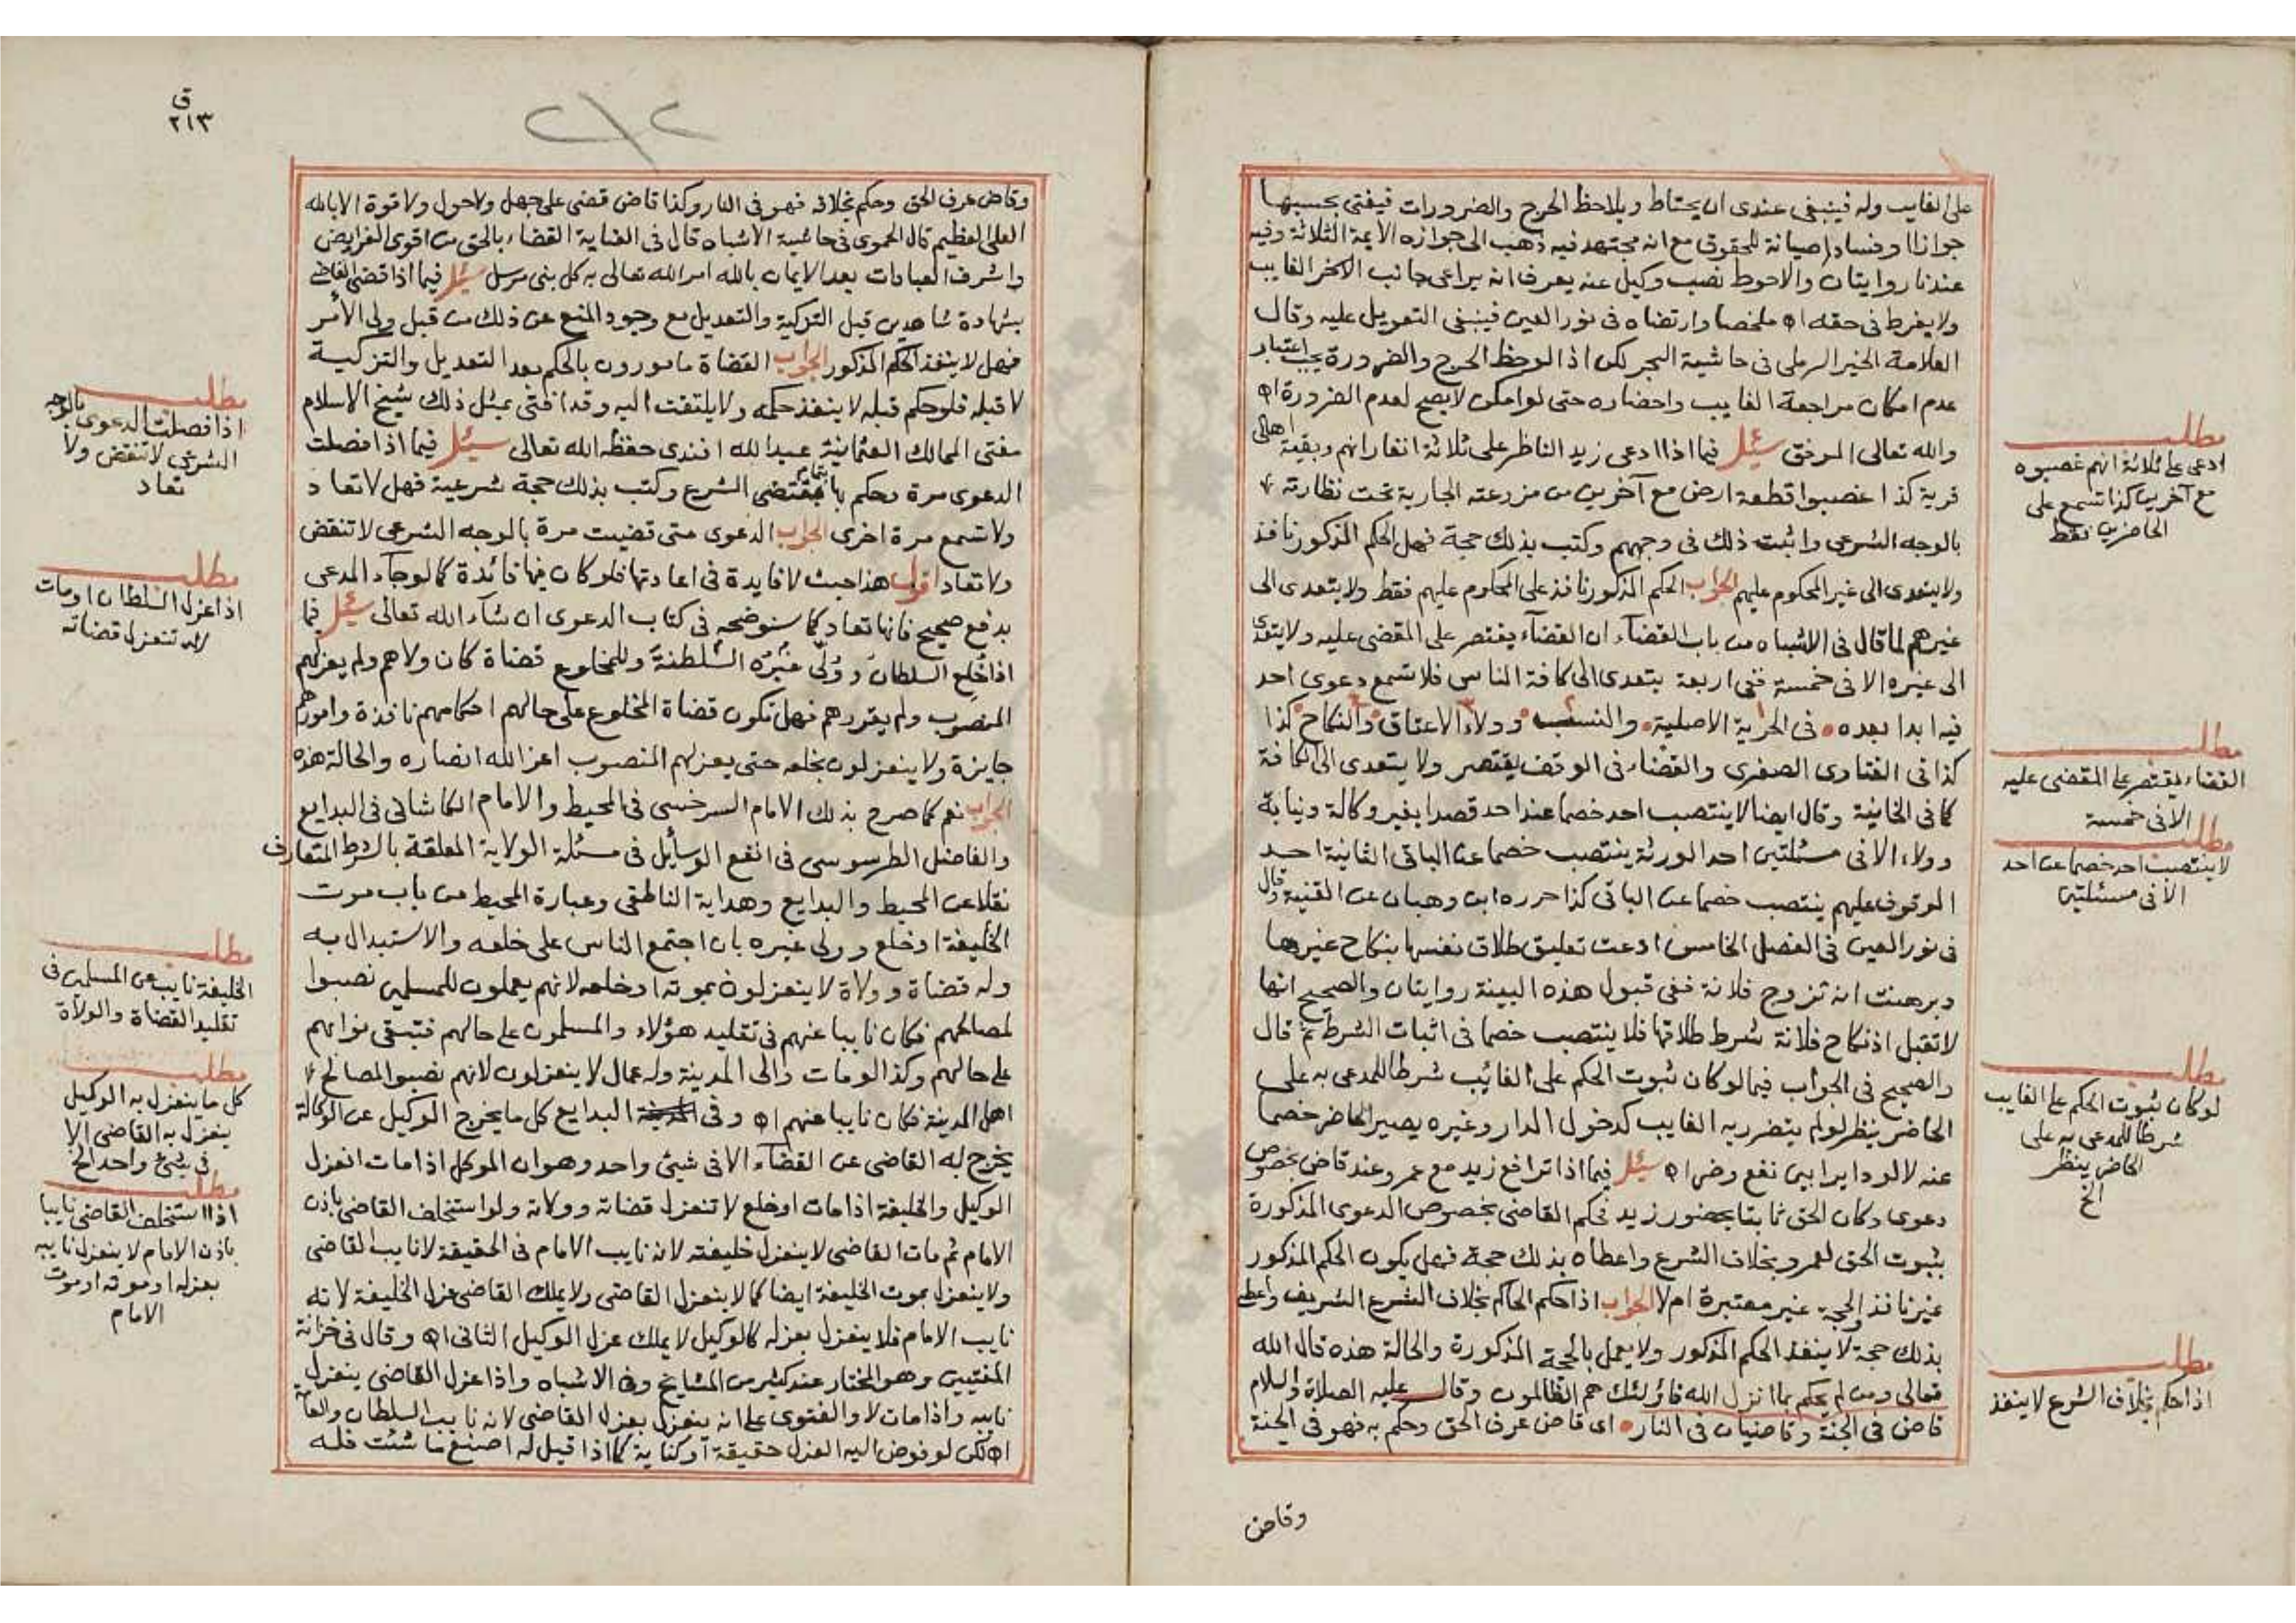 على الغايب وله فينبغي عندى ان يحتاط ويلاحظ الحرج والضرورات فيفتى بحسبها
جوازا او فسادا صيانة للحقوق مع انه مجتهد فيه ذهب الى جوازه الايمة الثلاثة وفيه
عندنا روايتان والاحوط نصب وكيل عنه يعرف انه يراعى جانب الاخر الغايب
ولا يفرط فى حقه اه ملخصا وارتضاه فى نور العين فينبغى التعويل عليه وقال
العلامة الخير الرملى فى حاشية البحر لكن اذا لوحظ الحرج والضرورة يجب اعتبار
عدم امكان مراجعة الغايب واحضاره حتى لو امكن لا يصح لعدم الضرورة اه
والله تعالى الموفق سئل فيما اذا ادعى زيد الناظر على ثلاثة انفار انهم وبقية اهالى
قرية كذا غصبوا قطعة ارض مع آخرين من مزرعته الجارية تحت نظارته
بالوجه الشرعى واثبت ذلك فى وجههم وكتب بذلك حجة فهل الحكم المذكور نافذ
ولا يتعدى الى غير المحكوم عليهم الجواب الحكم المذكور نافذ على المحكوم عليهم فقط ولا يتعدى الى
غيرهم لما قال فى الاشباه من باب القضآء ان القضآء يقتصر على المقضى عليه ولا يتعدى
الى غيره الا فى خمسة ففى اربعة يتعدى الى كافة الناس فلا تسمع دعوى احد
فيه ابدا بعده فى الحرية الاصلية والنسب وولاء الاعتاق والنكاح كذا
كذا فى الفتاوى الصغرى والقضاء فى الوقف يقتصر ولا يتعدى الى الكافة
كما فى الخانية وقال ايضا لا ينتصب احد خصما عن احد قصدا بغير وكالة ونيابة
وولاء الا فى مسئلتين احد الورثة ينتصب خصما عن الباقى الثانية احد
الموقوف عليهم ينتصب خصما عن الباقى كذا حرره ابن وهبان عن القنية وقال
فى نور العين فى الفصل الخامس ادعت تعليق طلاق نفسها بنكاح غيرها
وبرهنت انه تزوج فلانة ففى قبول هذه البينة روايتان والصحيح انها
لا تقبل اذ نكاح فلانة شرط طلاقها فلا ينتصب خصما فى اثبات الشرط ثم قال
والصحيح فى الجواب فيما لو كان ثبوت الحكم على الغائب شرطا للمدعى به على
الحاضر ينظر لو لم يتضرر به الغايب كدخول الدار وغيره يصير الحاضر خصما
عنه لا لو دايرا بين نفع وضر اه سئل فيما اذا ترافع زيد مع عمرو عند قاض بخصوص
دعوى وكان الحق ثابتا بحضور زيد فحكم القاضى بخصوص الدعوى المذكورة
بثبوت الحق لعمرو بخلاف الشرع واعطاه بذلك حجة فهل يكون الحكم المذكور
غير نافذ والحجة غير معتبرة ام لا الجواب اذا حكم الحاكم بخلاف الشرع الشريف واعطى
بذلك حجة لا ينفذ الحكم المذكور ولا يعمل بالحجة المذكورة والحالة هذه قال الله
تعالى ومن لم يحكم بما انزل الله فاولئك هم الظالمون وقال عليه الصلاة والسلام
قاض فى الجنة وقاضيان فى النار اى قاض عرف الحق وحكم به فهو فى الجنة
وقاض
مطلب
ادعى على ثلاثة انهم غصبوه
مع آخرين كذا تسمع على
الحاضرين فقط
مطلب
القضاء يقتصر على المقضى عليه
الا فى خمسة
مطلب
لا ينتصب احد خصما عن احد
الا فى مسئلتين
مطلب
لو كان ثبوت الحكم على الغايب
شرطا للمدعى به على
الحاضر ينظر
الخ
مطلب
اذا حكم بخلاف الشرع لا ينفذ
ق
٢١٣
٢١٢
وقاض عرف الحق وحكم بخلافه فهو فى النار وكذا قاض قضى على جهل ولا حول ولا قوة الا بالله
العلى العظيم قال الحموى فى حاشية الاشباه قال فى العناية القضاء بالحق من اقوى الفرايض
واشرف العبادات بعد الايمان بالله امر الله تعالى به كل نبى مرسل سئل فيما اذا قضى القاضى
بشهادة شاهدين قبل التزكية والتعديل مع وجود المنع عن ذلك من قبل ولى الأمر
فهل لا ينفذ الحكم المذكور الجواب القضاة مامورون بالحكم بعد التعديل والتزكية
لا قبله فلو حكم قبله لا ينفذ حكمه ولا يلتفت اليه وقد افتى بمثل ذلك شيخ الاسلام
مفتى الممالك العثمانية عبد الله افندى حفظه الله تعالى سئل فيما اذا فصلت
الدعوى مرة وحكم بها بمقتضى الشرع وكتب بذلك حجة شرعية فهل لا تعاد
ولا تسمع مرة اخرى الجواب الدعوى متى قضيت مرة بالوجه الشرعى لا تنقض
ولا تعاد اقول هذا حيث لا فايدة فى اعادتها فلو كان فيها فائدة كما لو جآء المدعى
بدفع صحيح فانها تعاد كما سنوضحه فى كتاب الدعوى ان شآء الله تعالى سئل فيما
اذا خلع السلطان وولى غيره السلطنة وللمخلوع قضاة كان ولاهم ولم يعزلهم
المنصوب ولم يقررهم فهل تكون قضاة المخلوع على حالهم احكامهم نافذة وامورهم
جايزة ولا ينعزلون بخلعه حتى يعزلهم المنصوب اعز الله انصاره والحالة هذه
الجواب نعم كما صرح بذلك الامام السرخسى فى المحيط والامام الكاشانى فى البدايع
والفاضل الطرسوسى فى انفع الوسآيل فى مسئلة الولاية المعلقة بالشرط المتعارف
نقلا عن المحيط والبدايع وهداية الناطفى وعبارة المحيط من باب موت
الخليفة او خلع وولى غيره بان اجتمع الناس على خلعه والاستبدال به
وله قضاة وولاة لا ينعزلون بموته او خلعه لانهم يعملون للمسلمين نصبوا
لمصالحهم فكان نايبا عنهم فى تقليد هؤلاء والمسلمون على حالهم فتبقى نوابهم
على حالهم وكذا لو مات والى المدينة وله عمال لا ينعزلون لانهم نصبوا لمصالح
اهل المدينة فكان نايبا عنهم اه وفى البدايع كل ما يخرج الوكيل عن الوكالة
يخرج به القاضى عن القضآء الا فى شيئ واحد وهو ان الموكل اذا مات انعزل
الوكيل والخليفة اذا مات او خلع لا تنعزل قضاته وولاته ولو استخلف القاضى باذن
الامام ثم مات القاضى لا ينعزل خليفته لانه نايب الامام فى الحقيقة لا نايب القاضى
ولا ينعزل بموت الخليفة ايضا كما لا ينعزل القاضى ولا يملك القاضى عزل الخليفة لانه
نايب الامام فلا ينعزل بعزله كالوكيل لا يملك عزل الوكيل الثانى اه وقال فى خزانة
المفتيين وهو المختار عند كثير من المشايخ وفى الاشباه واذا عزل القاضى ينعزل
نايبه واذا مات لا والفتوى على انه لا ينعزل بعزل القاضى لانه نايب السلطان والعامة
اه لكن لو فوض اليه العزل حقيقة او كناية كما اذا قيل له اصنع ما شئت فله
مطلب
اذا فصلت الدعوى بالوجه
الشرعى لا تنقض ولا
تعاد
مطلب
اذا عزل السلطان او مات
لا تنعزل قضاته
مطلب
الخليفة نايب عن المسلمين فى
تقليد القضاة والولاة
مطلب
كل ما ينعزل به الوكيل
ينعزل به القاضى الا
فى شيئ واحد الخ
مطلب
اذا استخلف القاضى نايبا
باذن الامام لا ينعزل نايبه
بعزله او موته او موت
الامام